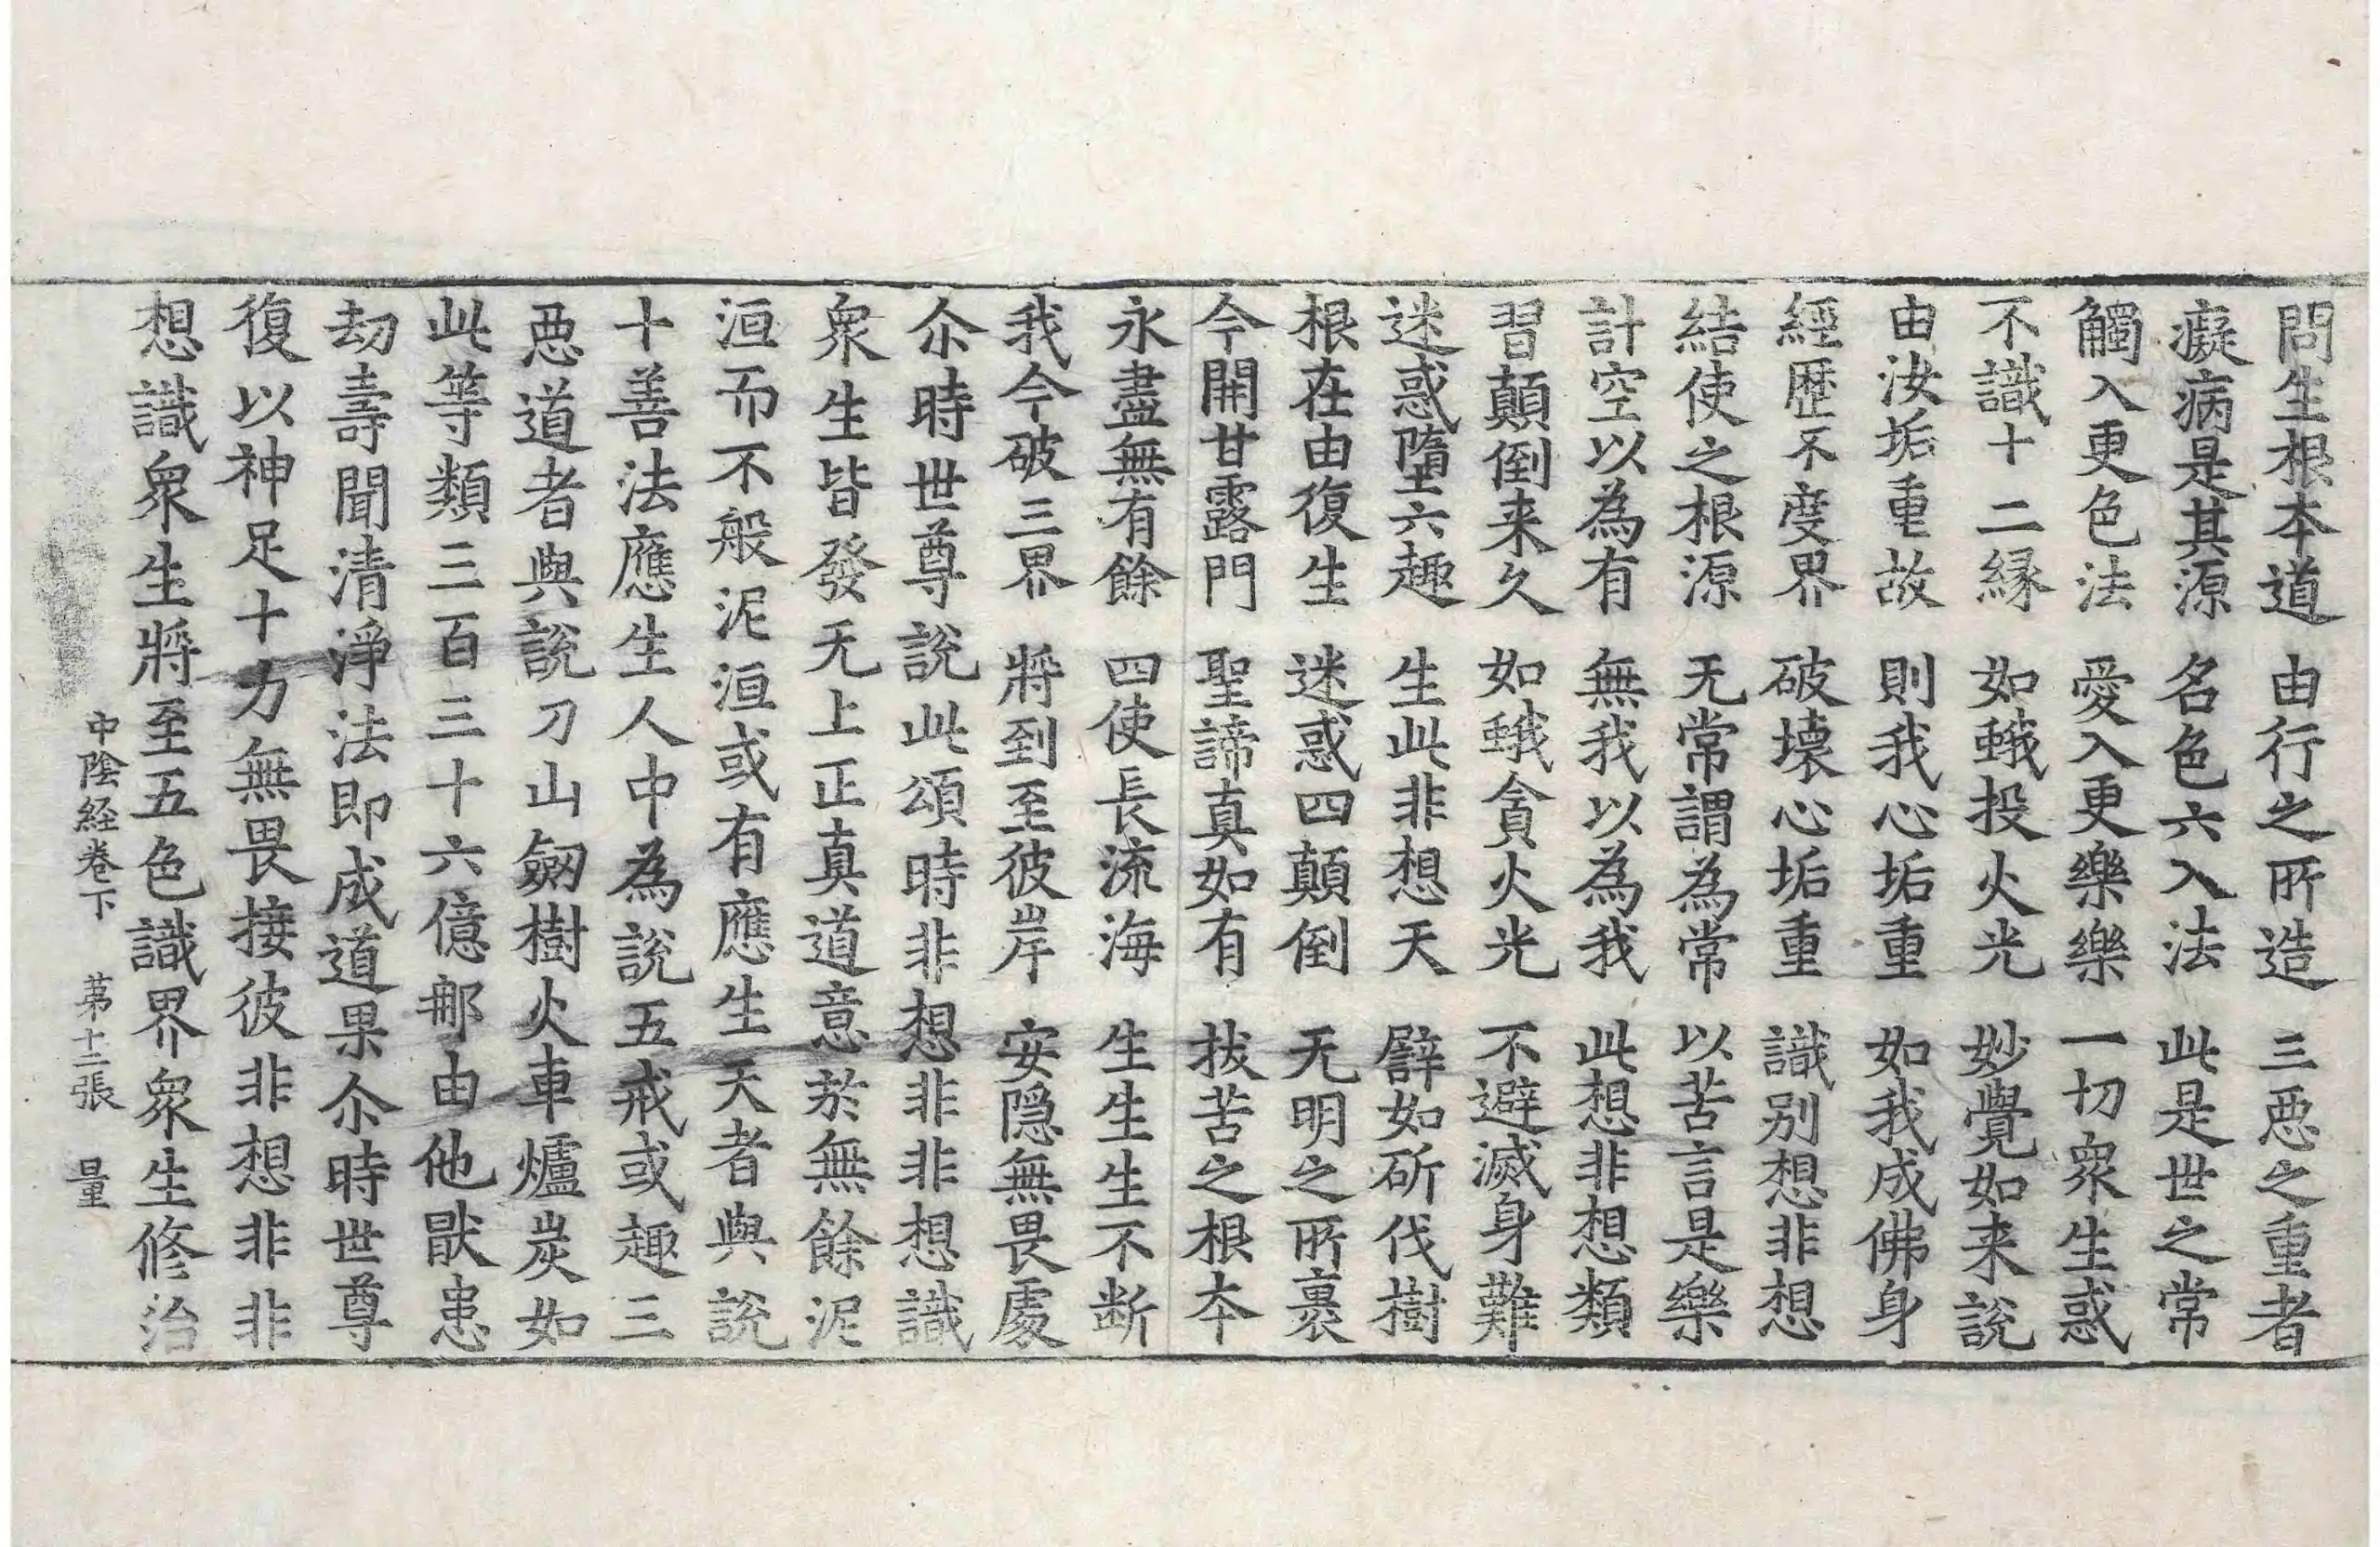 問生根本道　由行之所造　三惡之重者
癡病是其源　名色六入法　此是世之常
觸入更色法　愛入更樂樂　一切衆生惑
不識十二緣　如蛾投火光　妙覺如来說
由汝垢重故　則我心垢重　如我成佛身
經歷不度界　破壞心垢重　識別想非想
結使之根源　无常謂為常　以苦言是樂
計空以為有　無我以為我　此想非想類
習顛倒来久　如蛾貪火光　不避滅身難
迷惑墮六趣　生此非想天　譬如斫伐樹
根在由復生　迷惑四顛倒　无明之所裹
今開甘露門　聖諦真如有　拔苦之根本
永盡無有餘　四使長流海　生生生不断
我今破三界　將到至彼岸　安隱無畏處
尒時世尊說此頌時非想非非想識
衆生皆發无上正真道意於無餘泥
洹而不般泥洹或有應生天者與說
十善法應生人中為說五戒或趣三
惡道者與說刀山劒樹火車爐炭如
此等類三百三十六億那由他猒患
劫壽聞清淨法即成道果尒時世尊
復以神足十力無畏接彼非想非非
想識衆生將至五色識界衆生修治
中陰経卷下　苐十二張　量